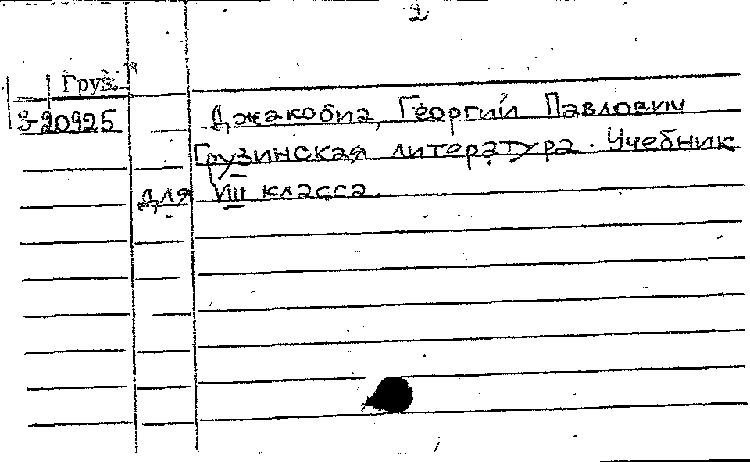 2
Груз.
3-20925
Джакобиа, Георгий Павлович
Грузинская литература. Учебник
для VIII класса.